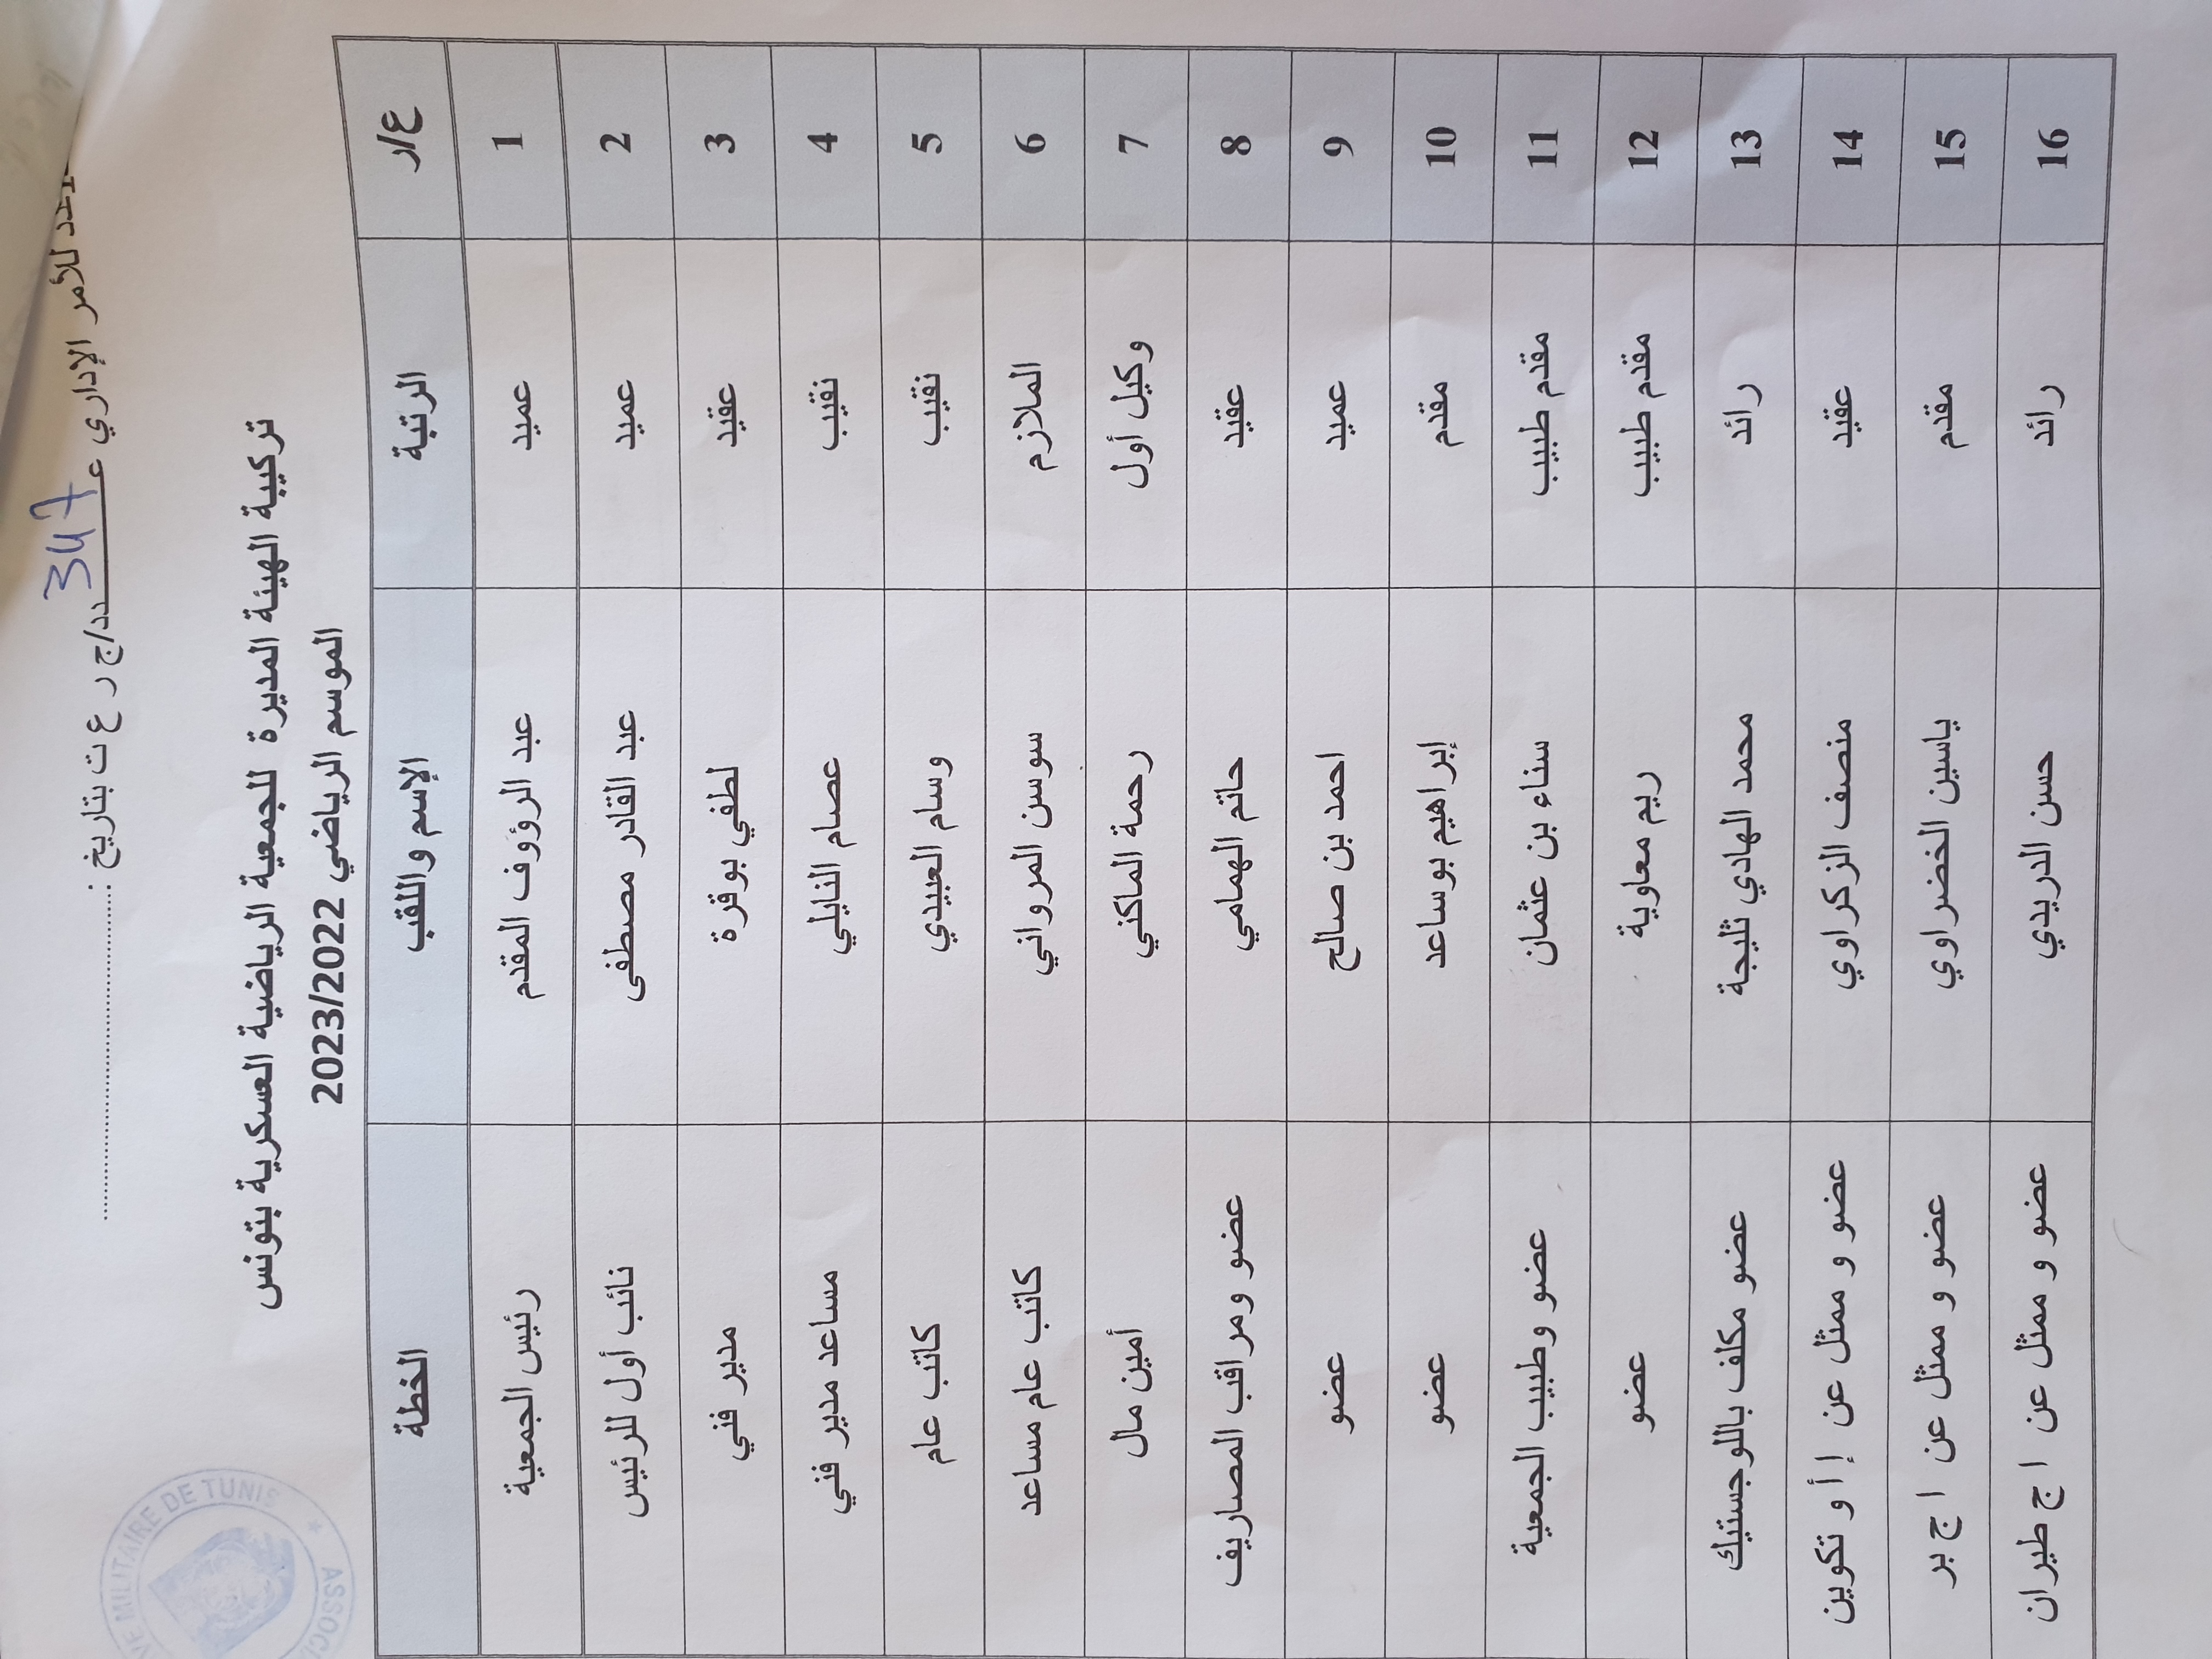 للأمر الإداري عـ 347 ـدد/ج ر ع ت بتاريخ :
تركيبة الهيئة المديرة للجمعية الرياضية العسكرية بتونس
الموسم الرياضي 2023/2022
ع/ر الرتبة الإسم واللقب الخطة
1 عميد عبد الرؤوف المقدم رئيس الجمعية
2 عميد عبد القادر مصطفى نائب أول للرئيس
3 عقيد لطفي بوقرة مدير فني
4 نقيب عصام النايلي مساعد مدير فني
5 نقيب وسام العبيدي كاتب عام
6 الملازم سوسن المرواني كاتب عام مساعد
7 وكيل أول رحمة الماكني أمين مال
8 عقيد حاتم الهمامي عضو ومراقب المصاريف
9 عميد احمد بن صالح عضو
10 مقدم إبراهيم بوساعد عضو
11 مقدم طبيب سناء بن عثمان عضو وطبيب الجمعية
12 مقدم طبيب ريم معاوية عضو
13 رائد محمد الهادي ثليجة عضو مكلف باللوجستيك
14 عقيد منصف الزكراوي عضو و ممثل عن إ أ و تكوين
15 مقدم ياسين الخضراوي عضو و ممثل عن ا ج بر
16 رائد حسن الدريدي عضو و ممثل عن ا ج طيران
VE MILITAIRE DE TUNIS ★ ASSOCI